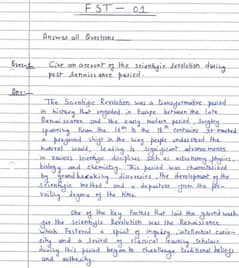 FST - 01
Answer all Questions
Ques:- Give an account of the scientific revolution during
post Rennaissance period.
Ans:-
The Scientific Revolution was a transformative period
in history that unfolded in Europe between the late
Renaissance and the early modern period, roughly
spanning from the 16th to the 18th centuries. It marked
a profound shift in the way people understood the
natural world, leading to significant advancements
in various scientific disciplines such as astronomy, physics,
biology and chemistry. This period was characterised
by groundbreaking discoveries, the development of the
scientific method, and a departure from the pre-
vailing dogma of the time.
One of the key factors that laid the ground work
for the scientific Revolution was the Renaissance
which fostered a spirit of inquiry, intellectual curio-
sity and a revival of classical learning. Scholars
during this period began to challenge traditional beliefs
and authority